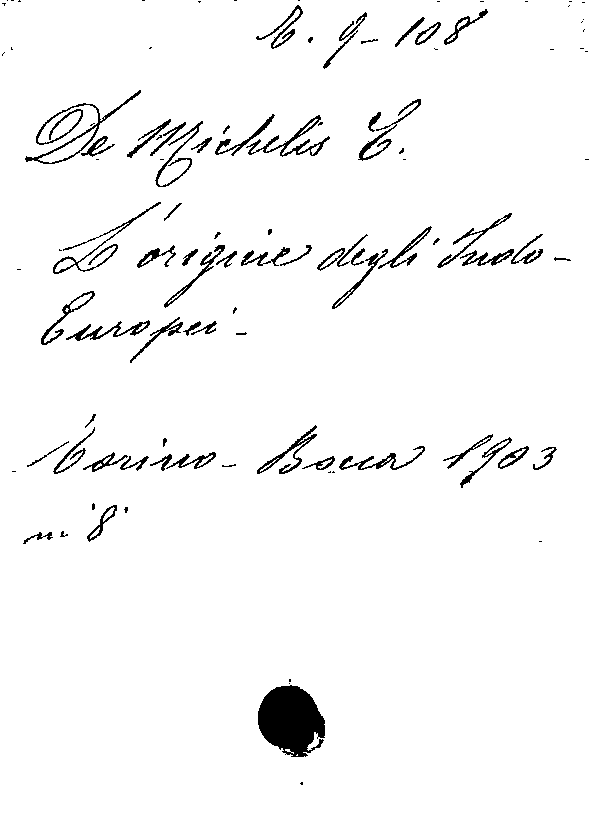 9-108
De Michelis E.
L'origine degli Indo-
Europei -
Torino - Bocca 1903
in 8°